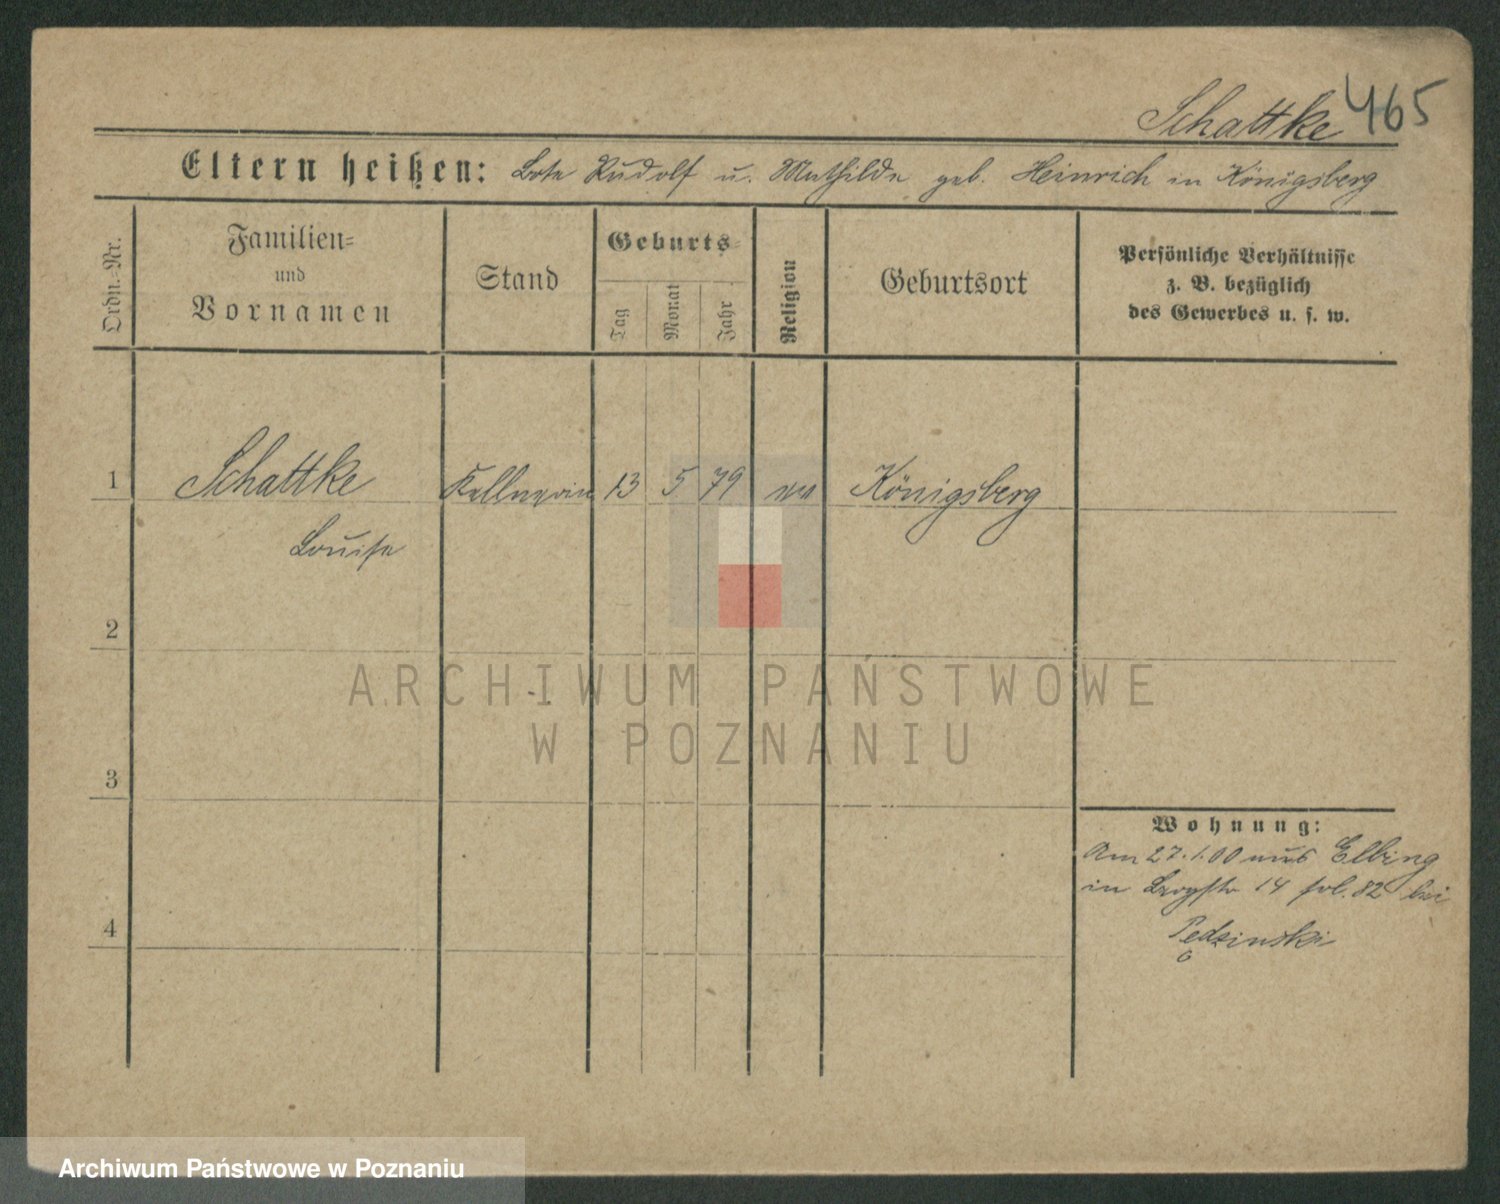 Schattke 465
Eltern heißen: Bote Rudolf u. Mathilde geb. Heinrich in Königsberg
Ordn.-Nr.
Familien-
und
Vornamen
Stand
Geburts-
Tag
Monat
Jahr
Religion
Geburtsort
Persönliche Verhältnisse
z. B. bezüglich
des Gewerbes u. s. w.
1 Schattke Kellnerin 13 5 79 ev Königsberg
Louise
2
ARCHIWUM PAŃSTWOWE
W POZNANIU
3
Wohnung:
Am 27.1.00 aus Elbing
in 14 fol. 82 bei
4
Pędzinski
Archiwum Państwowe w Poznaniu